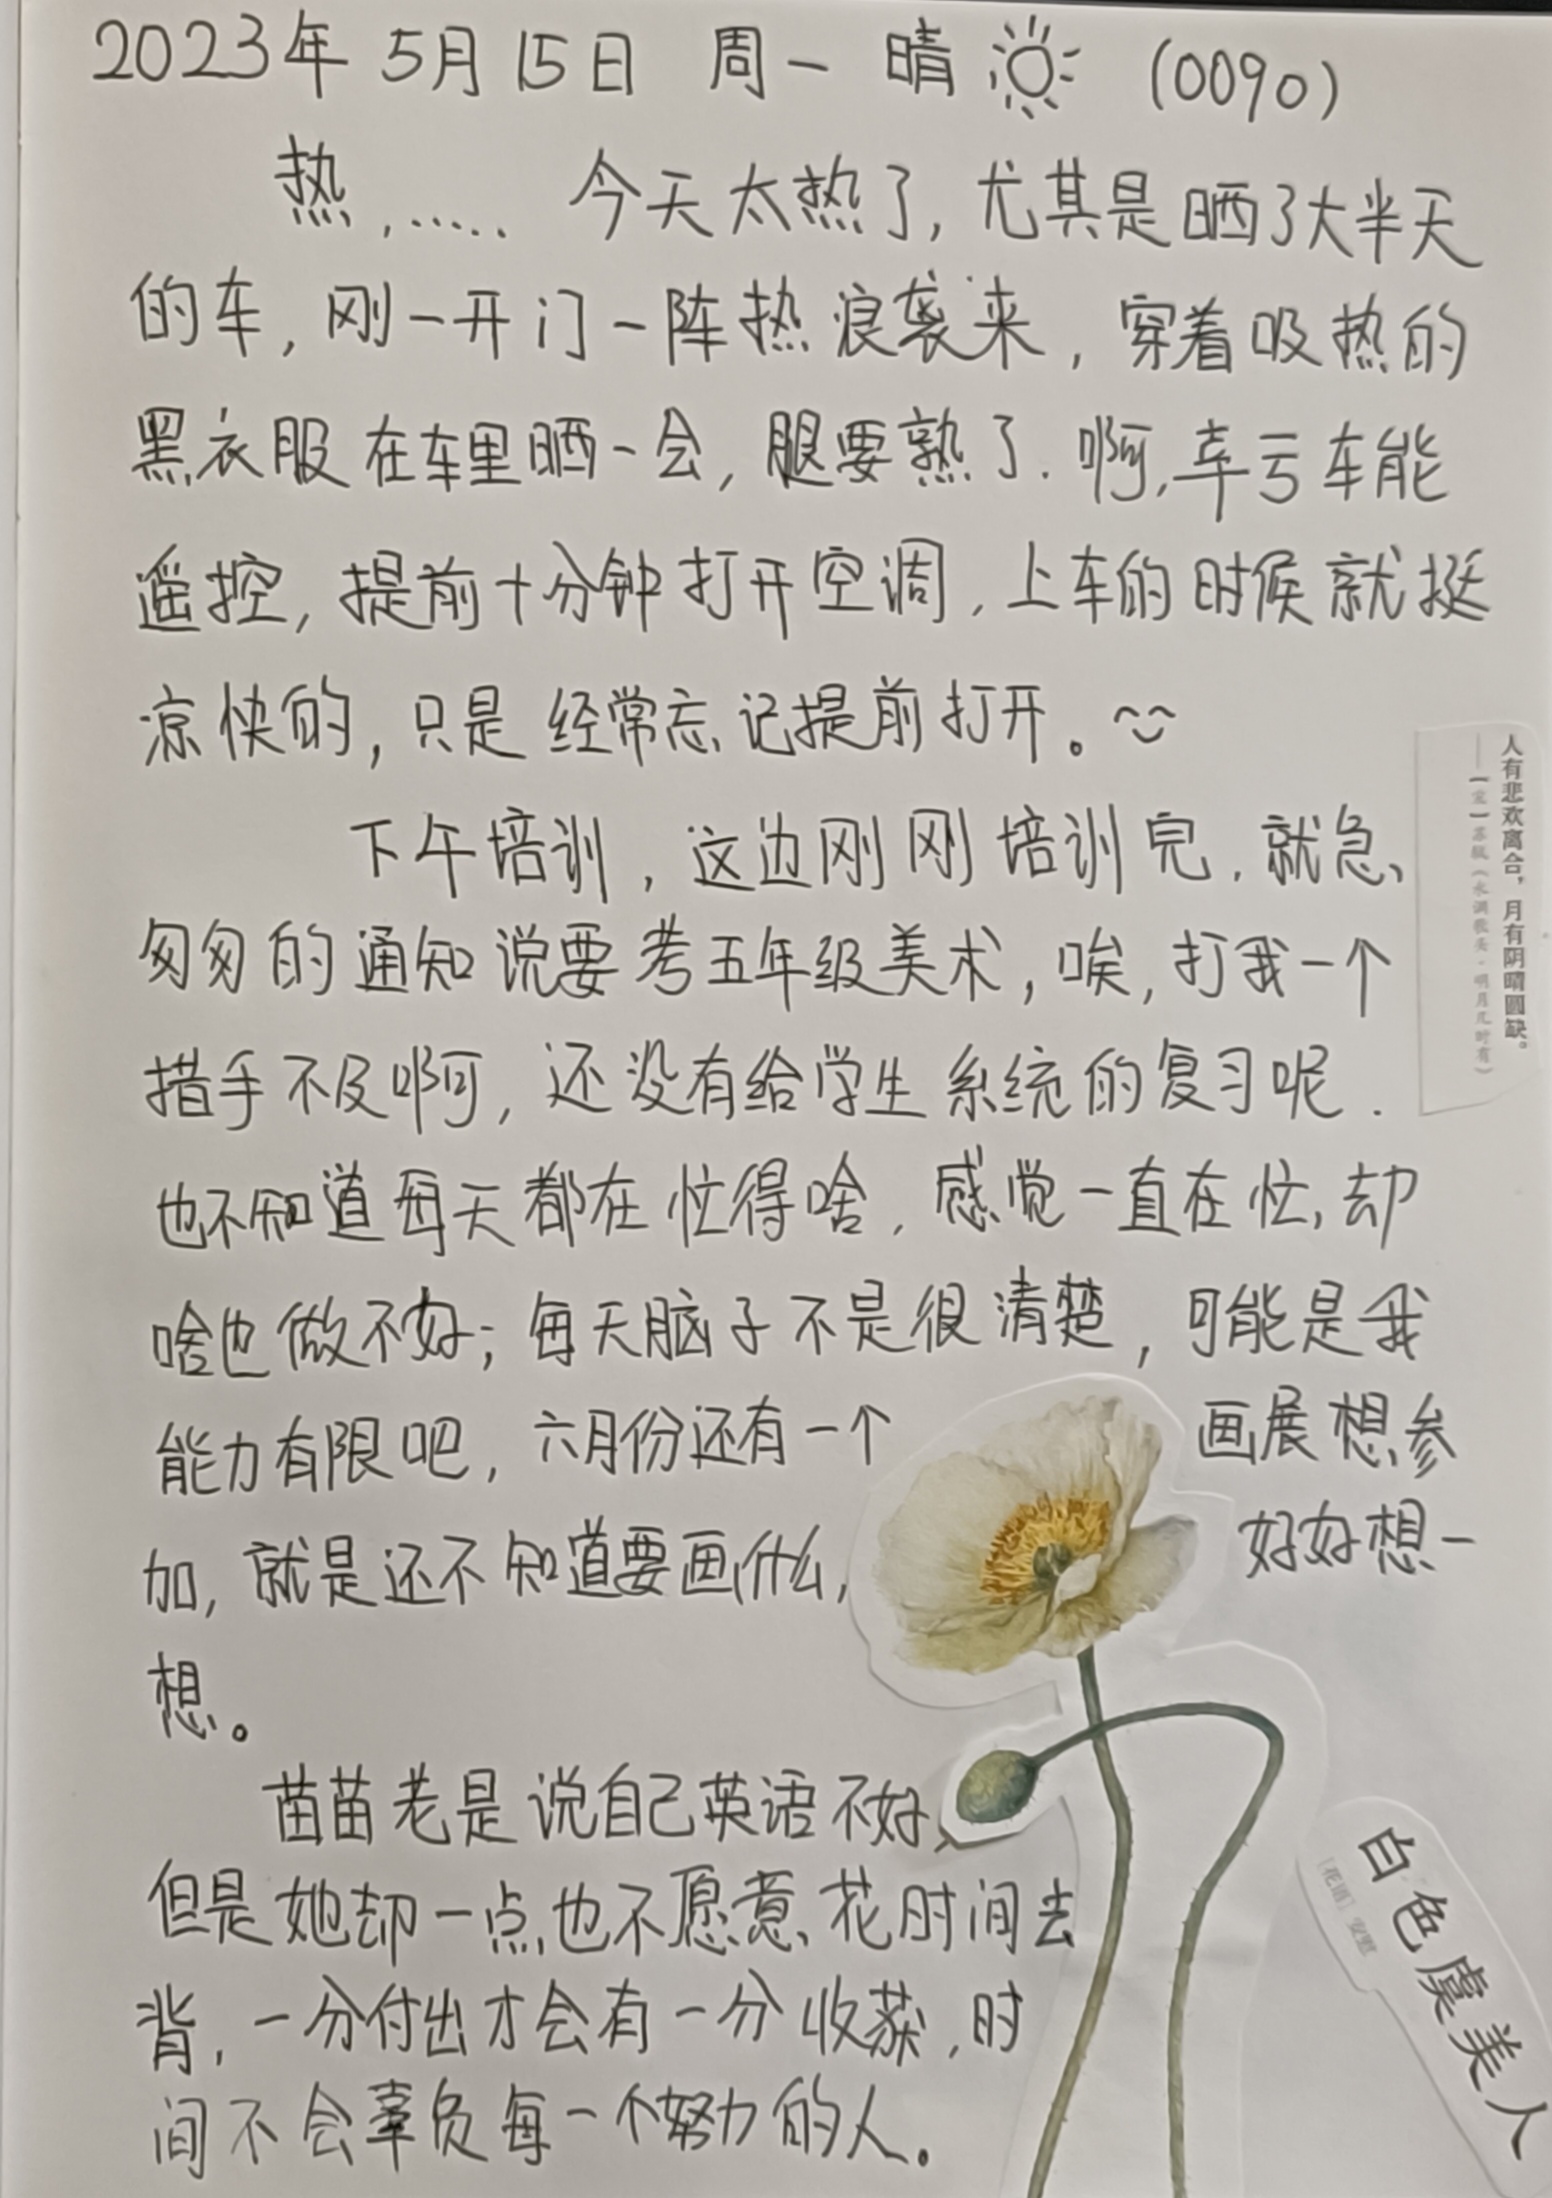 2023年 5月 15日 周一 晴 (0090)
热…… 今天太热了,尤其是晒了大半天
的车,刚一开门一阵热浪袭来,穿着吸热的
黑衣服在车里晒一会,腿要熟了.啊,幸亏车能
遥控,提前十分钟打开空调,上车的时候就挺
凉快的,只是经常忘记提前打开。
下午培训,这边刚刚培训完.就急
匆匆的通知说要考五年级美术,唉,打我一个
措手不及啊,还没有给学生系统的复习呢.
也不知道每天都在忙得啥,感觉一直在忙,却
啥也做不好;每天脑子不是很清楚,可能是我
能力有限吧,六月份还有一个画展想参
加,就是还不知道要画什么,好好想一
想。
苗苗老是说自己英语不好,
但是她却一点也不愿意花时间去
背,一分付出才会有一分收获,时
间不会辜负每一个努力的人。
人有悲欢离合,月有阴晴圆缺。
——[宋]苏轼《水调歌头·明月几时有》
白色虞美人
[花语] 安慰